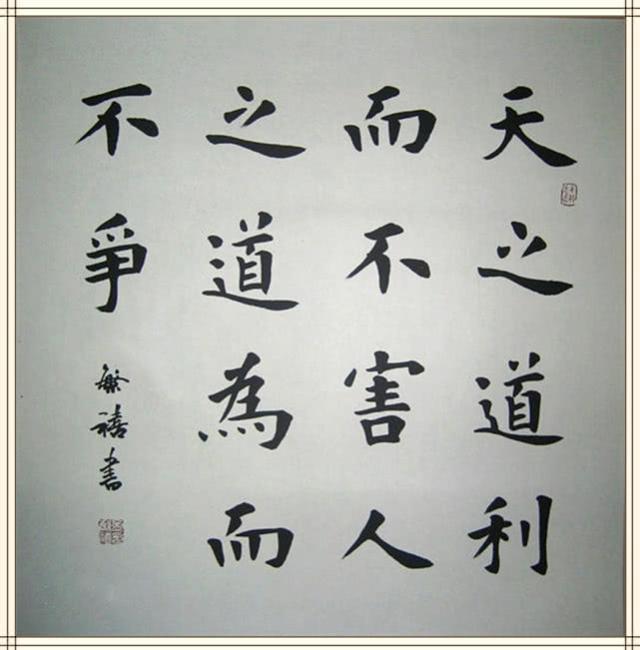 天之道利
而不害人
之道為而
不爭
敏禧書